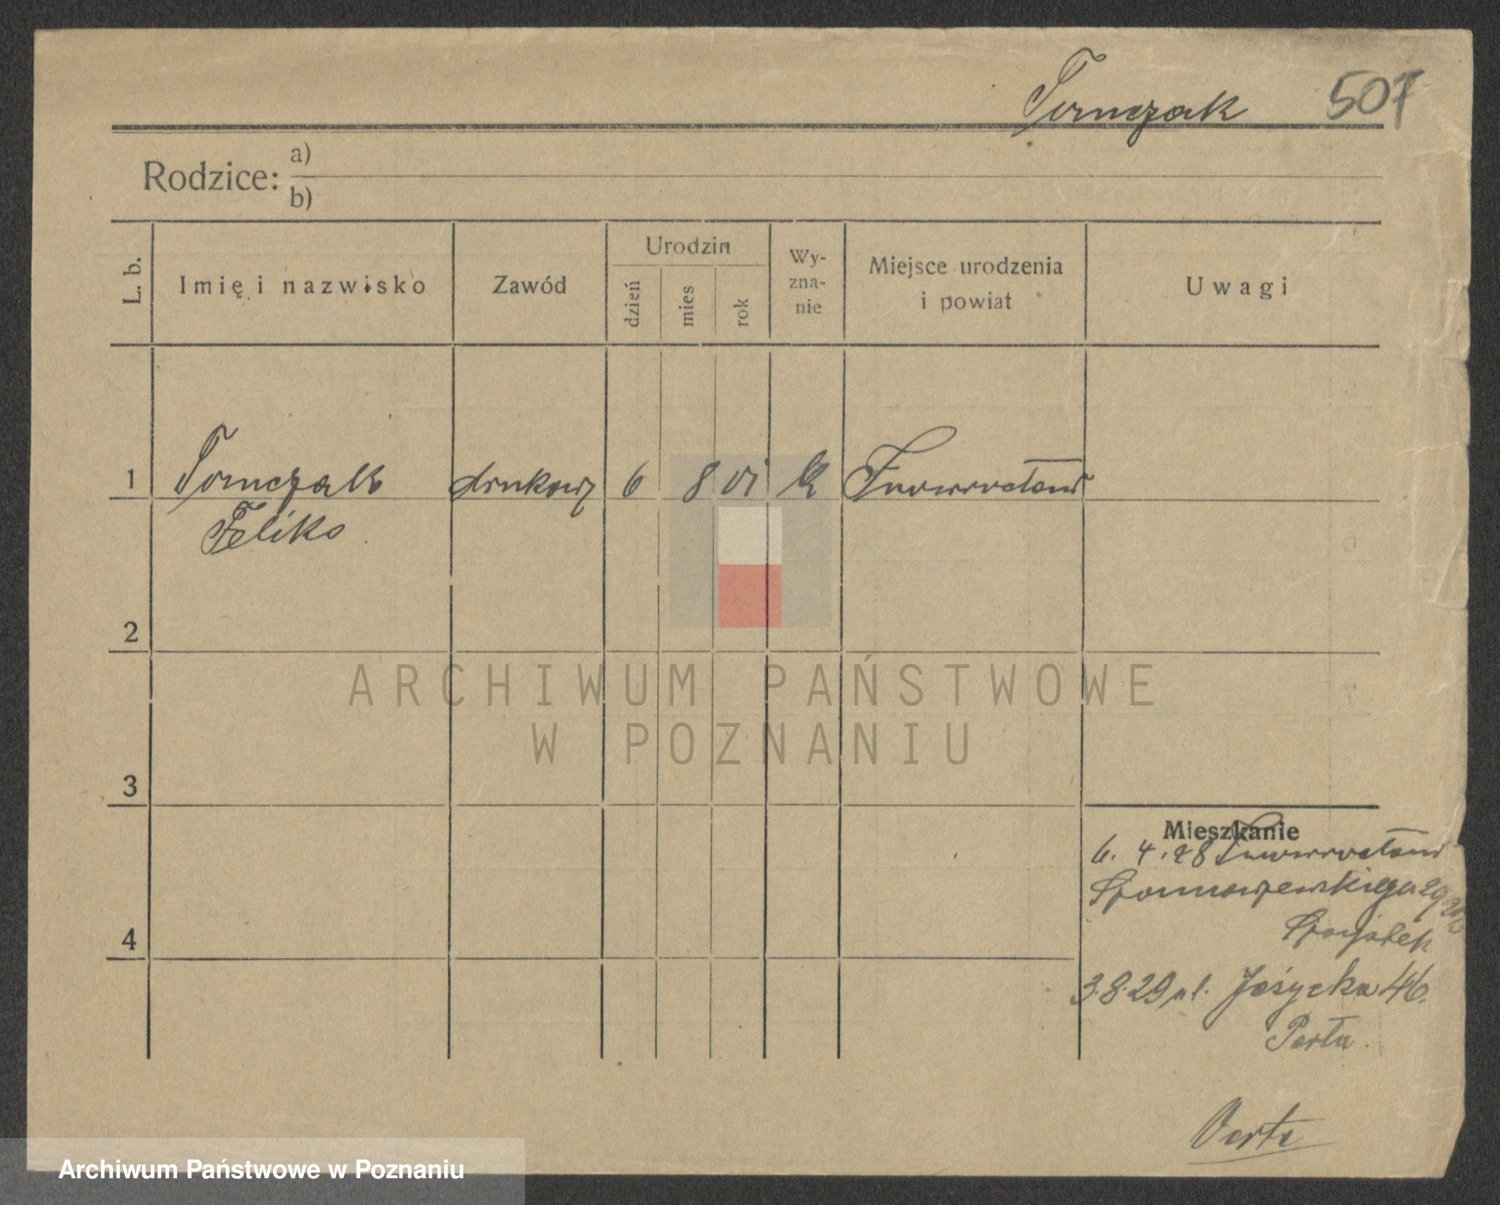 Tomczak 507
Rodzice: a)
b)
L. b. Imię i nazwisko Zawód Urodzin dzień mies rok Wy-zna-nie Miejsce urodzenia i powiat Uwagi
1 Tomczak 6 8 01 k Inowrocław
Feliks
2
ARCHIWUM PAŃSTWOWE
W POZNANIU
3
Mieszkanie
6. 4. 28 Inowrocław
4
3.8.29 ul. 46.
Verte
Archiwum Państwowe w Poznaniu